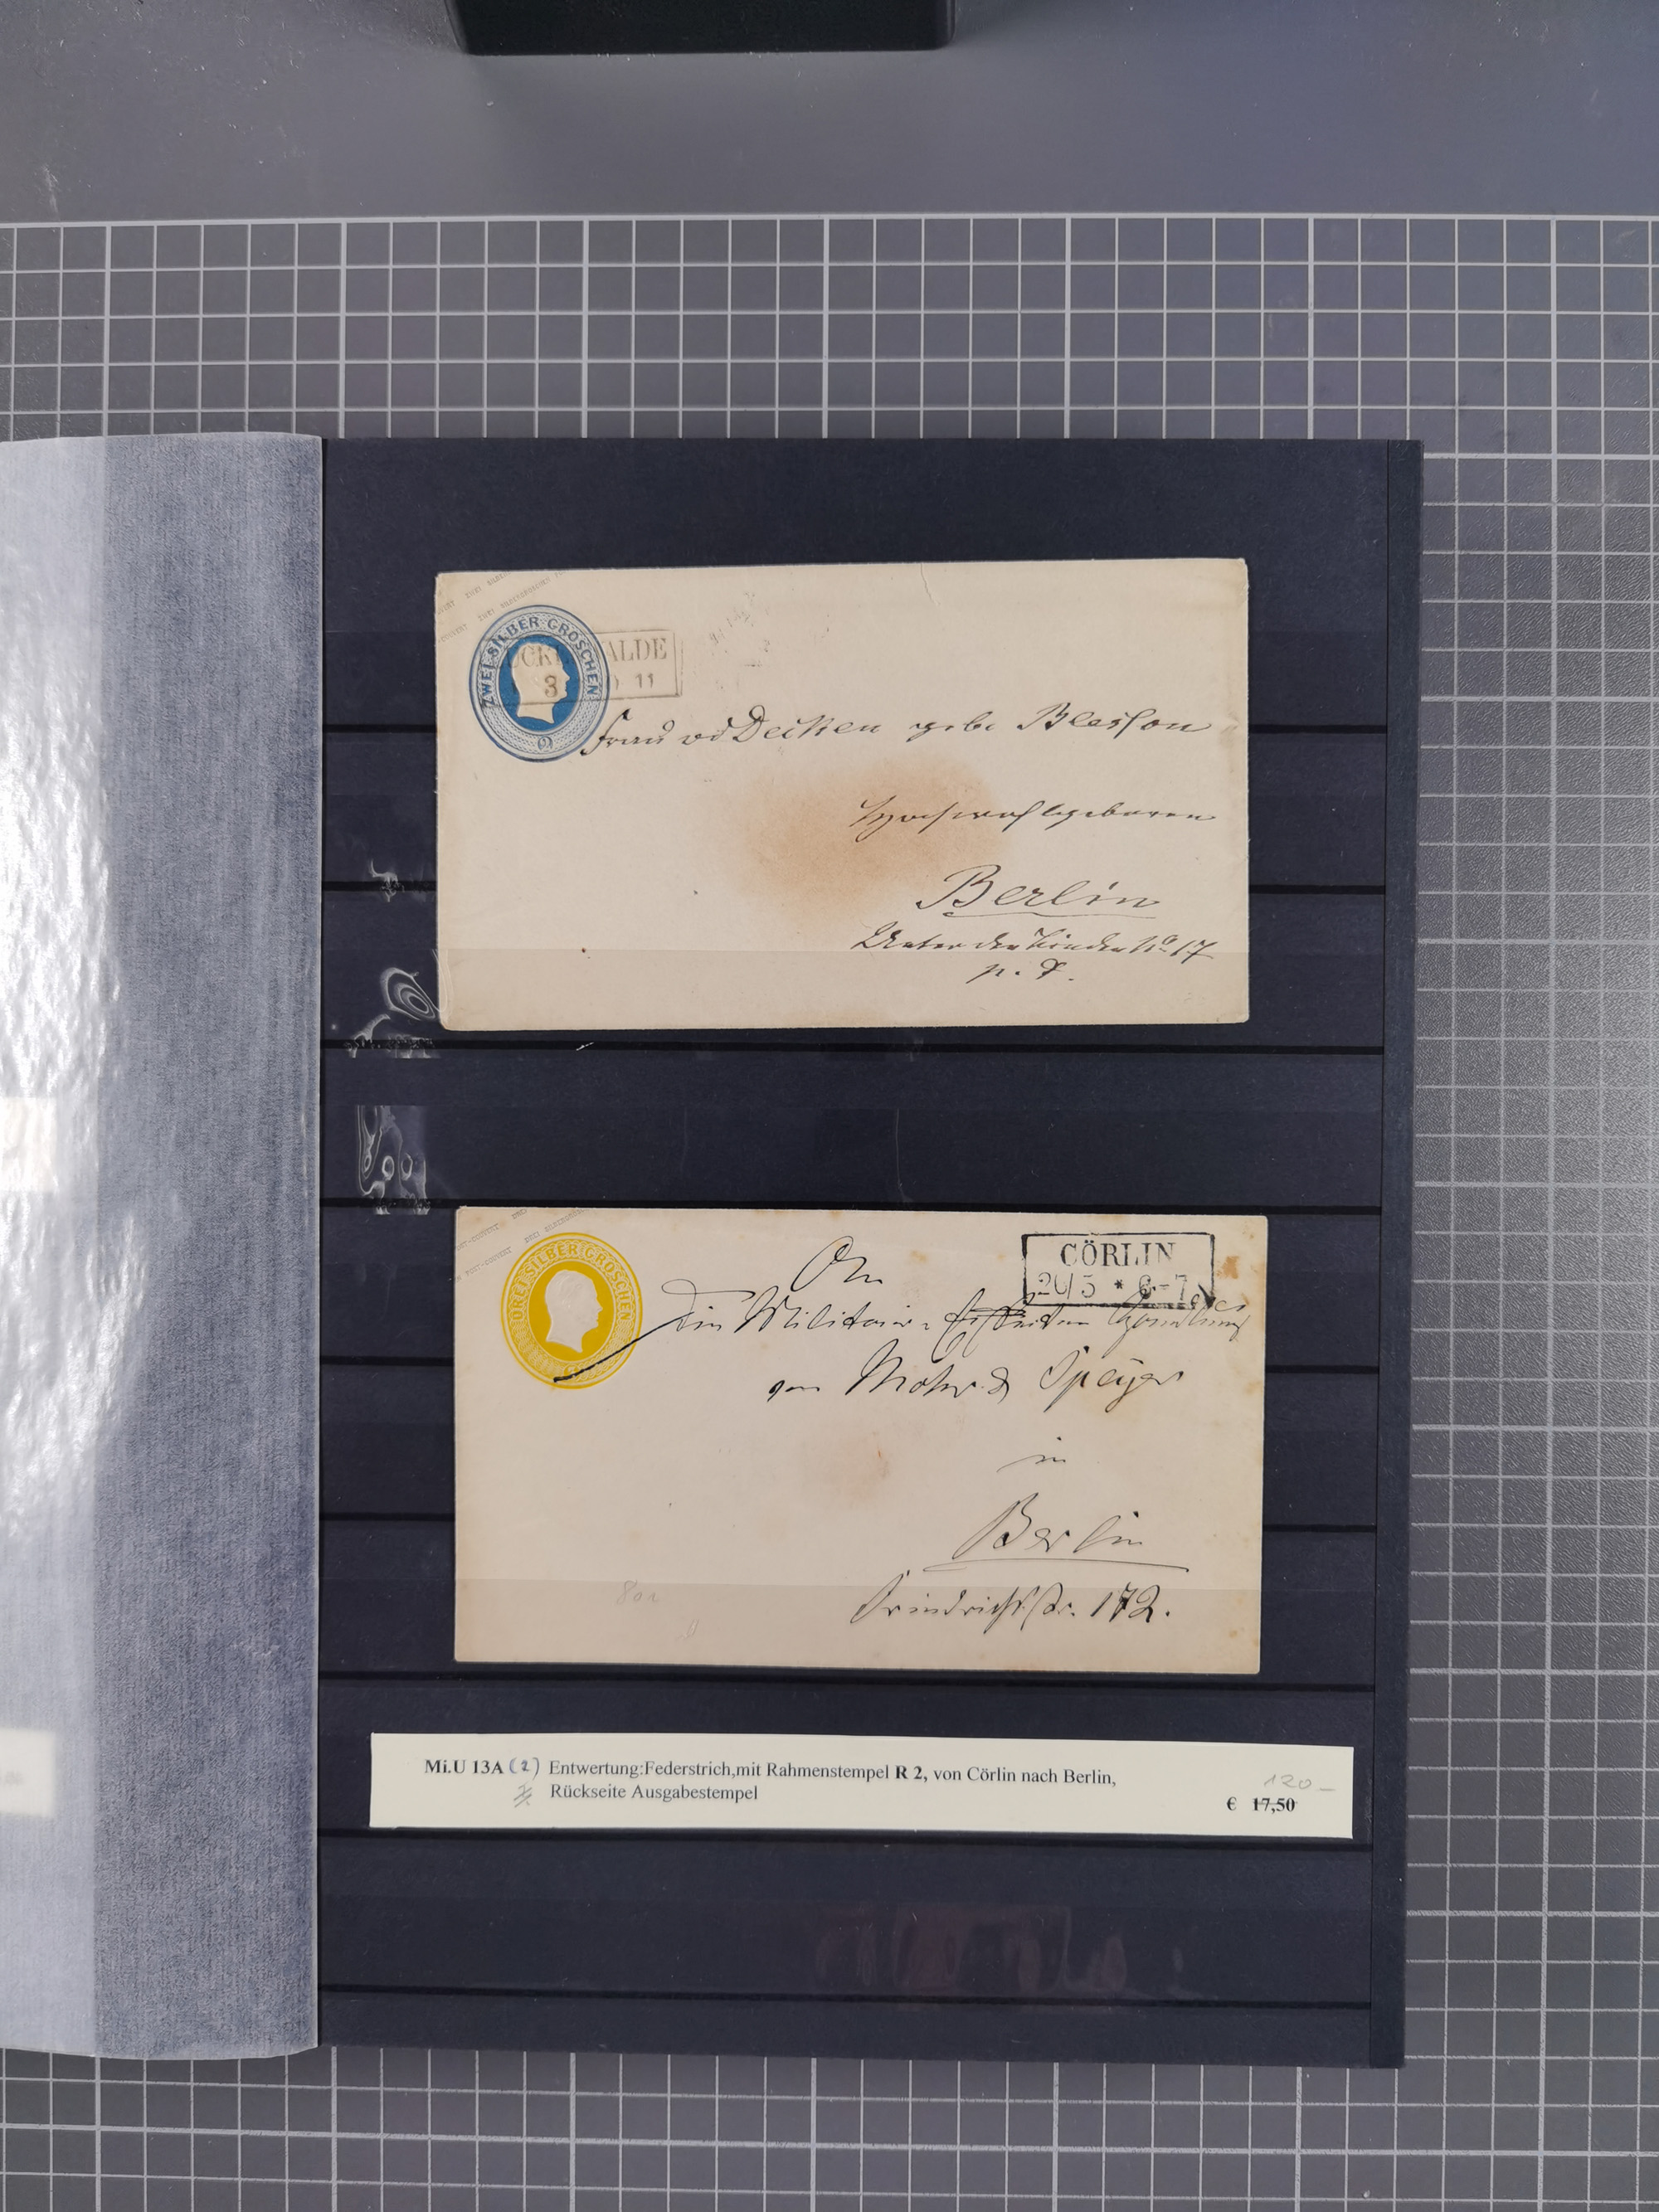 ZWEI SILBER GROSCHEN
2
ALDE
3 11
Frau vd Decken gebe Blesson
Hochwohlgeboren
Berlin
Unter den Linden No 17
p. r.
DREI SILBER GROSCHEN
CÖRLIN
20/5 * 6-7
An
die Militair-Effecten Handlung
von Mohr & Speyer
in
Berlin
Friedrichstr. 172.
Mi.U 13A (2) Entwertung:Federstrich,mit Rahmenstempel R 2, von Cörlin nach Berlin,
II. Rückseite Ausgabestempel
120-
€ 17,50